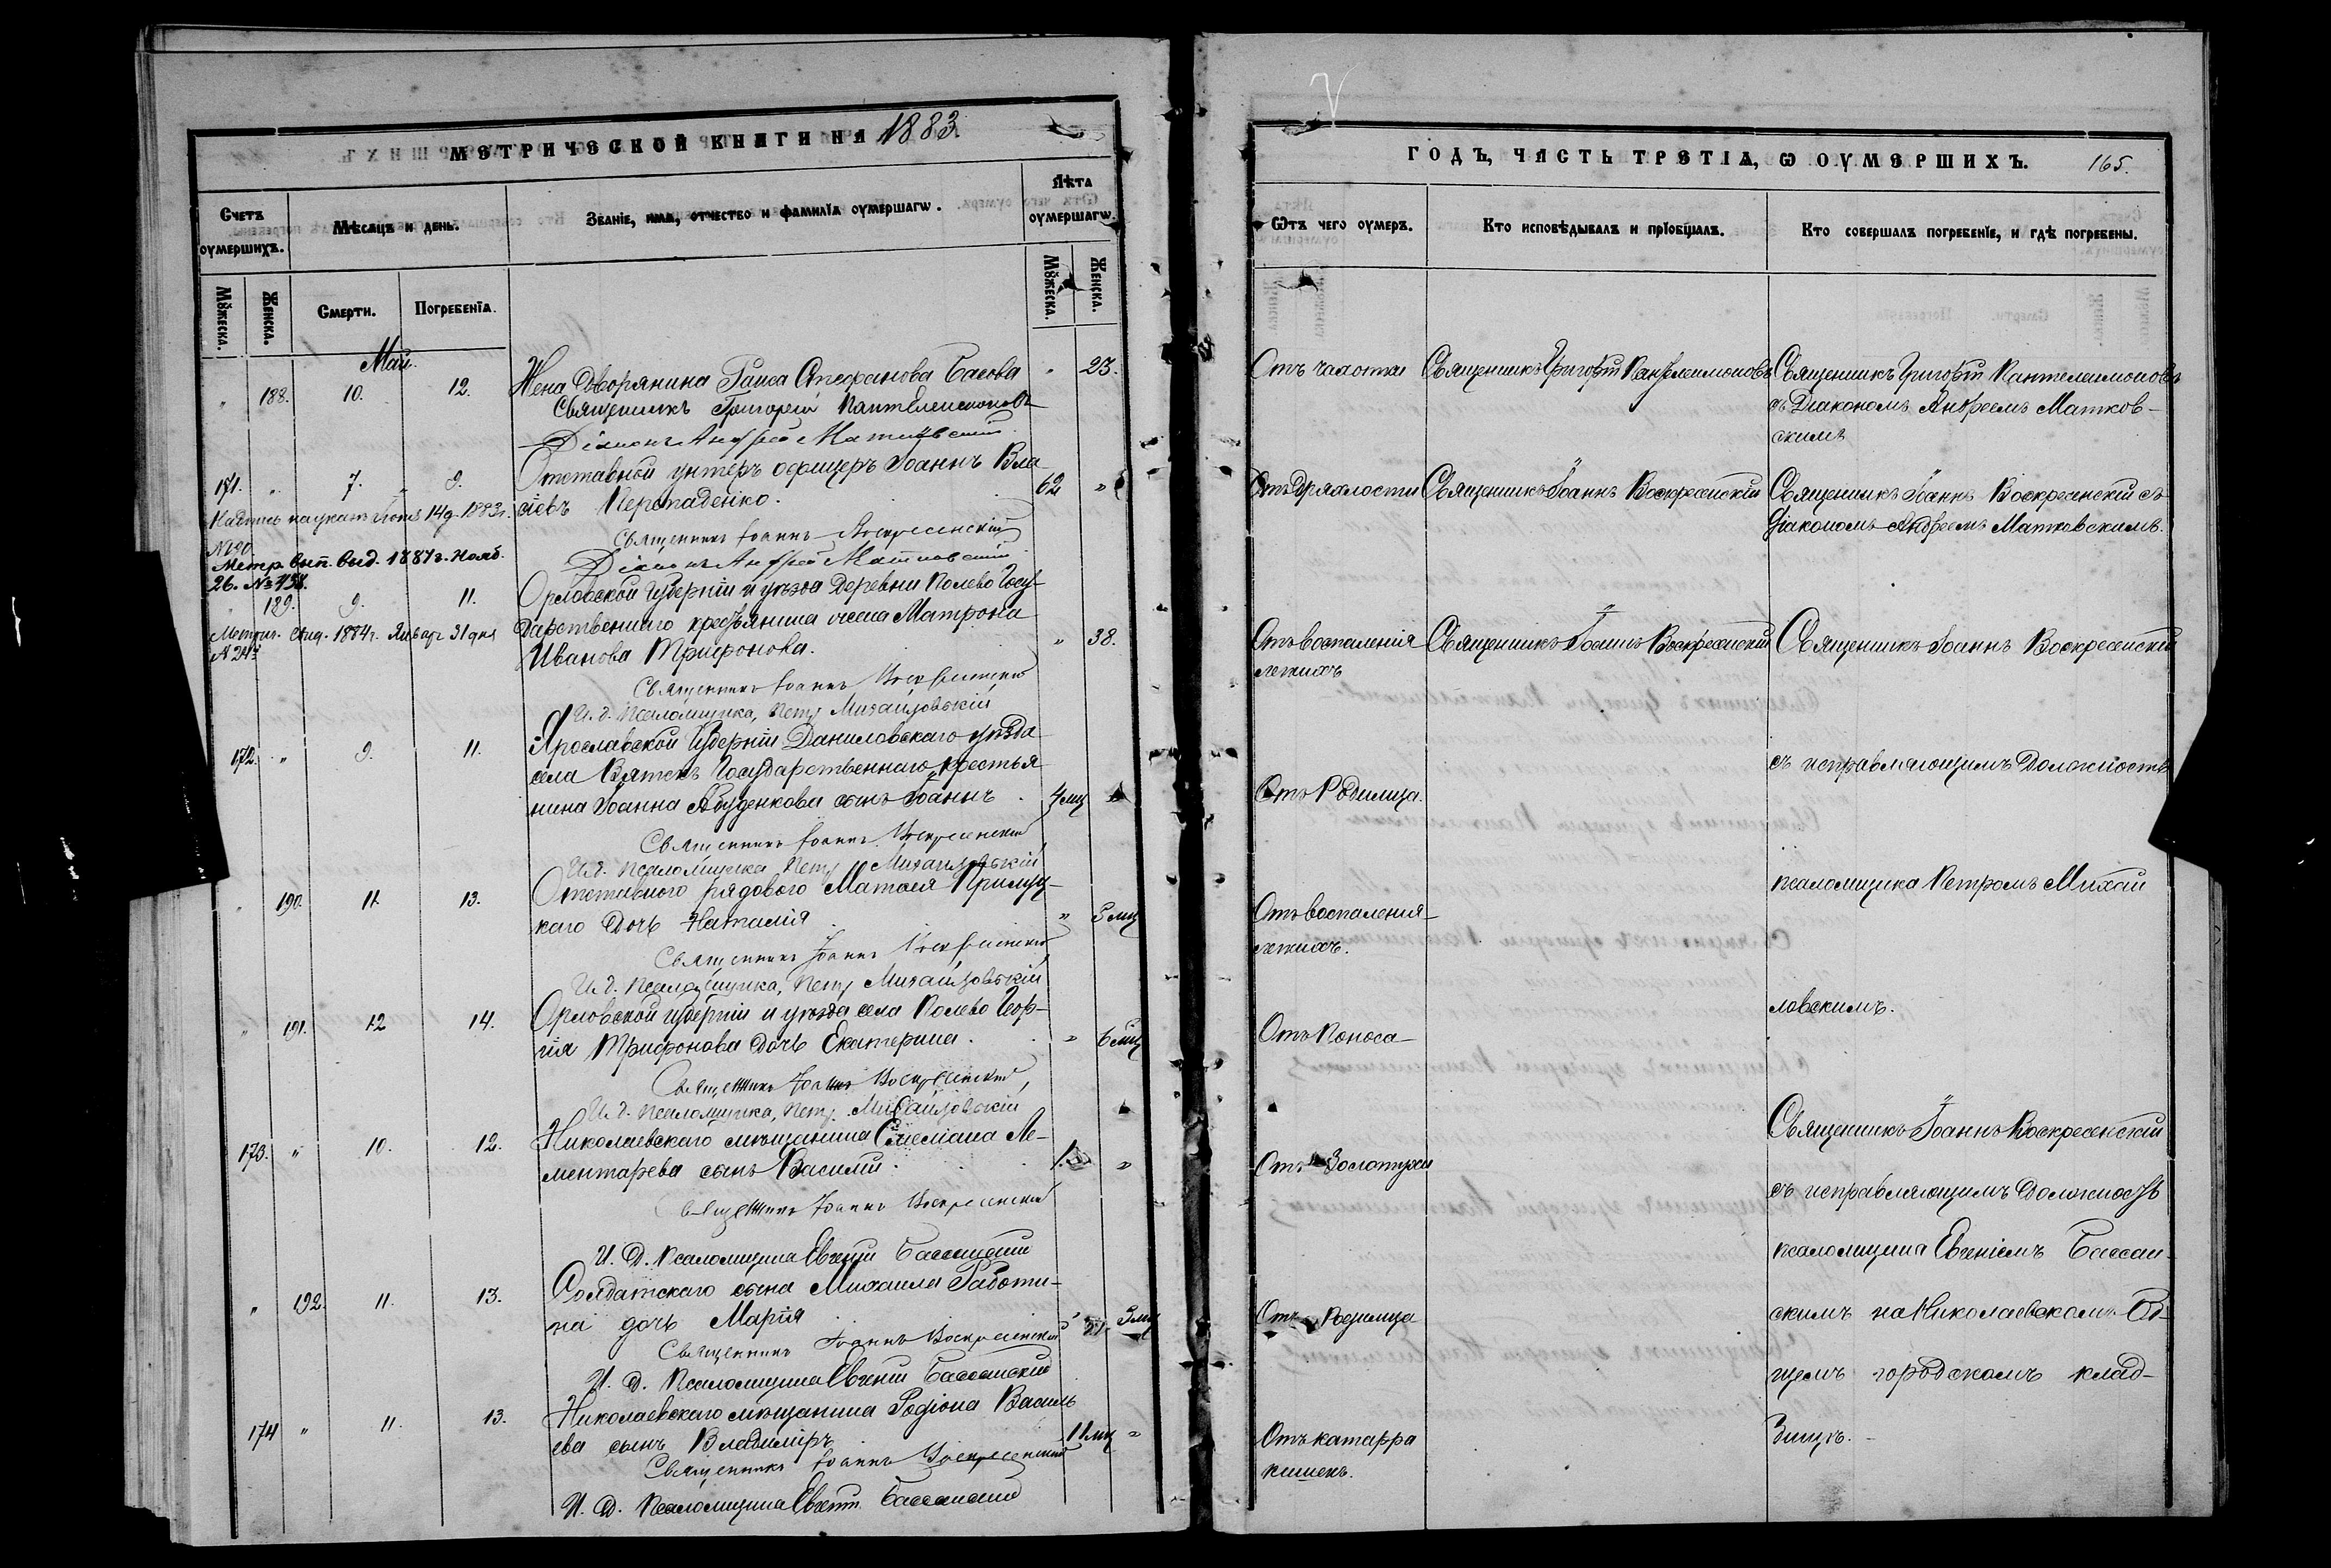 МЕТРИЧЕСКОЙ КНИГИ НА 1883
Счетъ оумершихъ.
Мѣсяцъ и день.
Званіе, имя, отчество и фамилія оумершагω.
Лѣта оумершагω.
Мꙋжеска.
Женска.
Смерти.
Погребенїа.
Мꙋжеска.
Женска.
Май.
" 188. 10. 12. Жена Дворянина Раиса Стефанова Басова " 23.
Священникъ Григорій Пантелеимоновъ
Діаконъ Андрей Матковскій
171. " 7. 9. Отставной унтеръ офицеръ Іоаннъ Вла-
сіевъ Перепаденко. 62 "
Священникъ Іоаннъ Воскресенскій
Діаконъ Андрей Матковскій
14 д. 1883 г.
№ 90
Метр. вып. выд. 1887 г. Нояб.
26. № 758.
" 189. 9. 11. Орловской Губерніи и уѣзда Деревни Полево Госу-
дарственнаго крестьянина жена Матрона
Иванова Трифонова. " 38.
Метрич. свид. 1884 г. Январ 31 дня
Священникъ Іоаннъ Воскресенскій
И. д. Псаломщика, Петръ Михайловскій
172. " 9. 11. Ярославской Губерніи Даниловскаго уѣзда
села Вятскъ Государственнаго крестья
нина Іоанна Абуденкова сынъ Іоаннъ . 7 мц "
Священникъ Іоаннъ Воскресенскій
И. д. Псаломщика Петръ Михайловскій
" 190. 11. 13. Отставного рядового Матѳея Прилуц-
каго дочь Наталія " 5 мц
Священникъ Іоаннъ Воскресенскій
И. д. Псаломщика, Петръ Михайловскій
" 191. 12 14. Орловской губерніи и уѣзда села Полево Геор-
гія Трифонова дочь Екатерина. " 6 мц
Священникъ Іоаннъ Воскресенскій,
И. д. Псаломщика, Петръ Михайловскій
173. " 10. 12. Николаевскаго мѣщанина Емеліана Ле-
ментарева сынъ Василій. 1. "
Священникъ Іоаннъ Воскресенскій
И. Д. Псаломщика Евгеній Бассанскій
" 192. 11. 13. Солдатскаго сына Михаила Работи-
на дочь Марія " 3 мц
Священникъ Іоаннъ Воскресенскій
И. Д. Псаломщика Евгеній Бассанскій
174 " 11. 13. Николаевскаго мѣщанина Родіона Василь
ева сынъ Владиміръ 11 мц "
Священникъ Іоаннъ Воскресенскій
И. Д. Псаломщика Евгеній Бассанскій
ГОДЪ, ЧАСТЬ ТРЕТІА, Ѡ ОУМЕРШИХЪ. 165.
Ѿтъ чего оумеръ.
Кто исповѣдывалъ и прїобщалъ.
Кто совершалъ погребенїе, и гдѣ погребены.
Отъ чахотки Священникъ Григорій Пантелеимоновъ Священникъ Григорій Пантелеимоновъ
съ Діакономъ Андреемъ Матков-
скимъ
Отъ дряхлости Священникъ Іоаннъ Воскресенскій Священникъ Іоаннъ Воскресенскій съ
Діакономъ Андреемъ Матковскимъ.
Отъ воспаленія Священникъ Іоаннъ Воскресенскій Священникъ Іоаннъ Воскресенскій
легкихъ
съ исправляющимъ Должность
Отъ Родимца.
псаломщика Петромъ Михай
Отъ воспаленія
легкихъ.
ловскимъ.
Отъ Поноса
Священникъ Іоаннъ Воскресенскій
Отъ Золотухи
съ исправляющимъ Должность
псаломщика Евгеніемъ Бассан-
Отъ Родимца
скимъ на Николаевскомъ Об-
щемъ городскомъ клад-
Отъ катарра
кишекъ.
бищѣ.